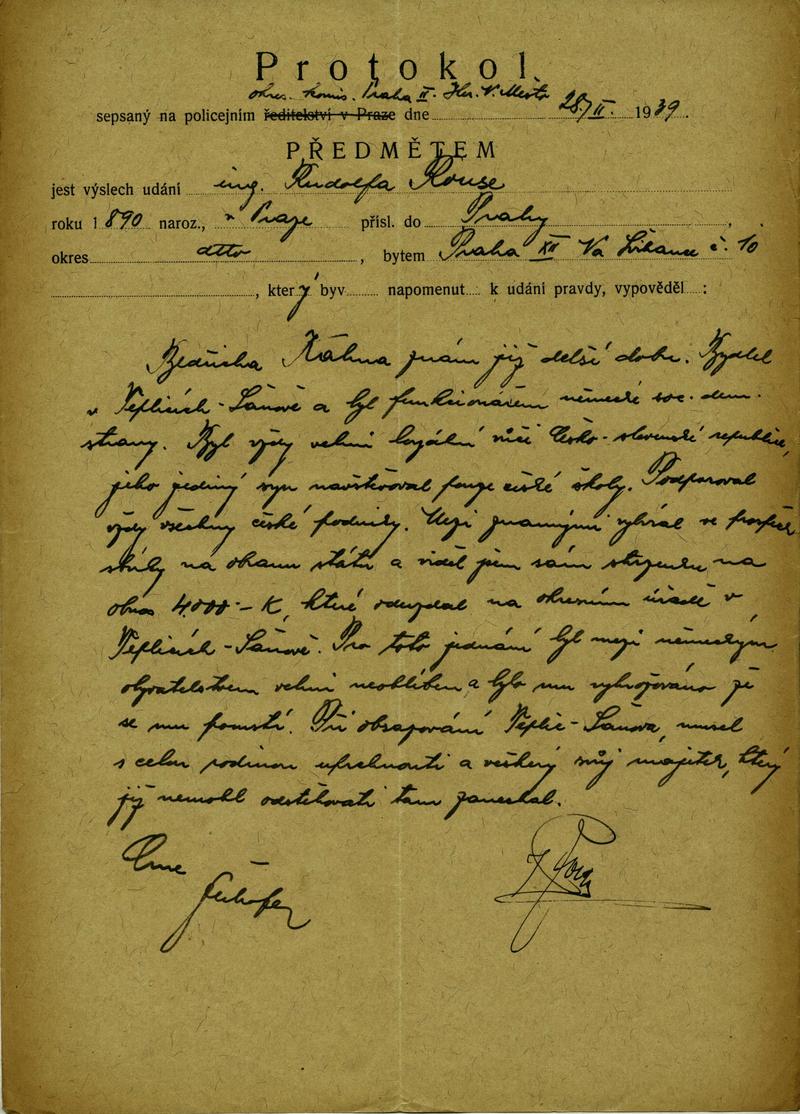 Protokol
okres. komis. Praha II. Hl. N. Město
sepsaný na policejním ředitelství v Praze dne 28/II. 1939.
PŘEDMĚTEM
jest výslech udání ing. Rudolfa
roku 1890 naroz., v Praze přísl. do Prahy,
okres atto, bytem Praha XII Na č. 10
, který byv napomenut k udání pravdy, vypověděl :
Bedřicha Kahna znám již delší dobu. Bydlel
v Teplicích-Šanově a byl funkcionářem německé soc. dem.
strany. Byl vždy velmi loyální vůči Česko-slovenské republice,
jeho jediný syn navštěvoval pouze české školy. Podporoval
vždy všechny české podniky. Mezi známými vybíral ve prospěch
sbírky na obranu státu a viděl jsem sám stvrzenku na
obnos 4000 - K, které odevzdal na okresním úřadě v
Teplicích-Šanově. Pro toto jednání byl mezi německým
obyvatelstvem velmi neoblíben a bylo mu vyhrožováno že
se mu pomstí. Při obsazování Teplic-Šanova, musel
s celou rodinou uprchnouti a veškerý svůj majetek, který
již nemohl odstěhovati tam zanechal.